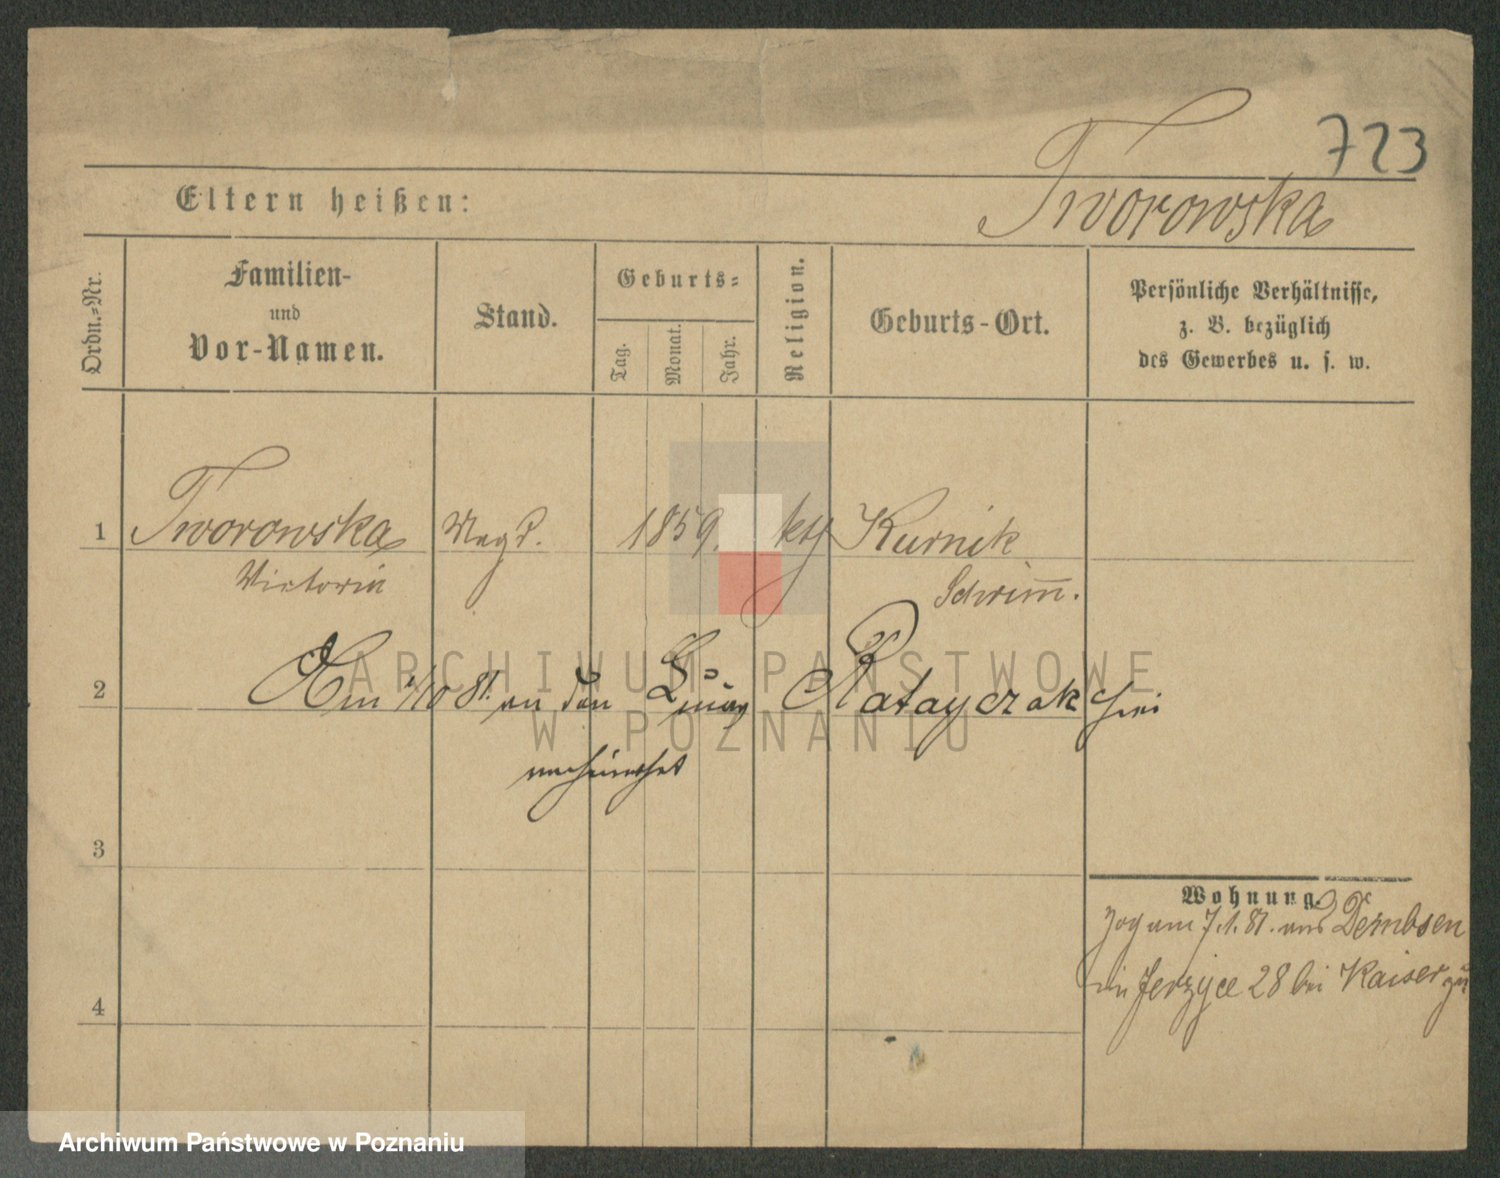 723
Tworowska
Eltern heißen:
Ordn.-Nr.
Familien-
und
Vor-Namen.
Stand.
Geburts-
Tag.
Monat.
Jahr.
Religion.
Geburts-Ort.
Persönliche Verhältnisse,
z. B. bezüglich
des Gewerbes u. s. w.
1 Tworowska Magd. 1859. kth Kurnik
Victoria Schrimm.
2 Am /10 81. an den Ratayczak hier
verheirathet
3
Wohnung.
Zog am 7.1.81. aus Dembsen
in Jerzyce 28 bei Kaiser zu
4
ARCHIWUM PAŃSTWOWE
W POZNANIU
Archiwum Państwowe w Poznaniu